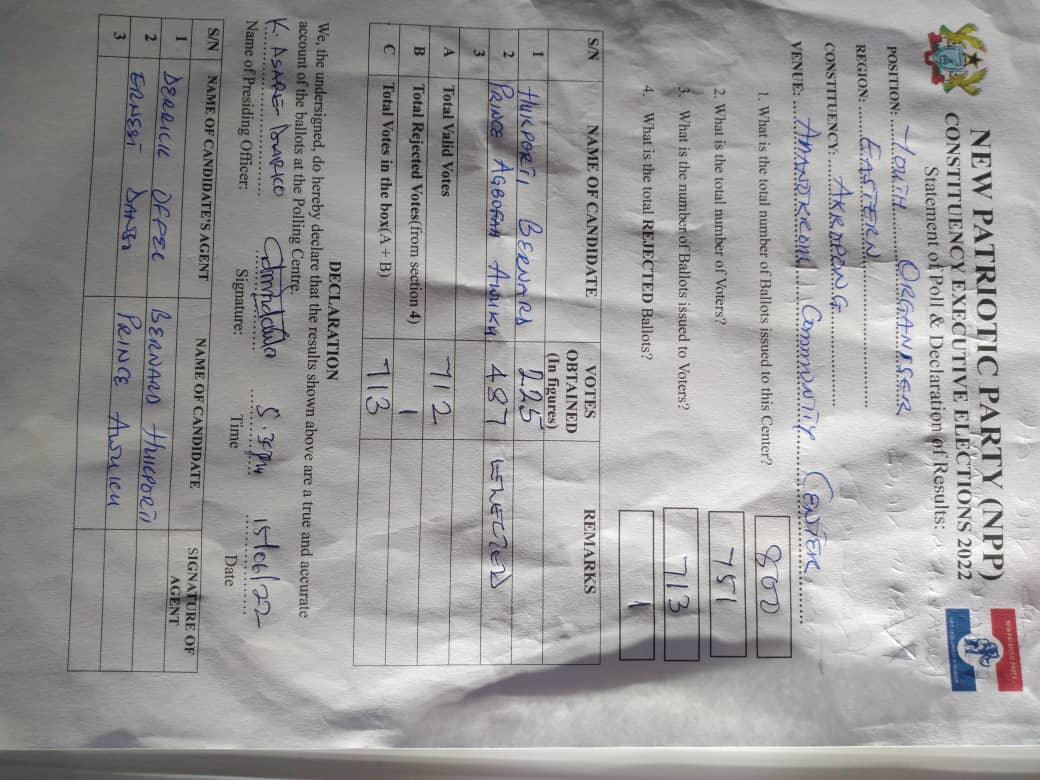 NEW PATRIOTIC PARTY (NPP)
CONSTITUENCY EXECUTIVE ELECTIONS 2022
Statement of Poll & Declaration of Results:
POSITION: YOUTH ORGANISER
REGION: EASTERN
CONSTITUENCY: AKROPONG
VENUE: AMANOKROM COMMUNITY CENTER
1. What is the total number of Ballots issued to this Center? 800
2. What is the total number of Voters? 751
3. What is the number of Ballots issued to Voters? 713
4. What is the total REJECTED Ballots? 1
S/N NAME OF CANDIDATE VOTES OBTAINED (In figures) REMARKS
1 HUKPORTI BERNARD 225
2 PRINCE AGBOFAH AWUKU 487 ELECTED
3
A Total Valid Votes 712
B Total Rejected Votes(from section 4) 1
C Total Votes in the box(A + B) 713
DECLARATION
We, the undersigned, do hereby declare that the results shown above are a true and accurate
account of the ballots at the Polling Centre.
K. ASARE DARKO 5.30pm 15/06/22
Name of Presiding Officer: Signature: Time Date
S/N NAME OF CANDIDATE'S AGENT NAME OF CANDIDATE SIGNATURE OF AGENT
1 DERRICK OFFEI BERNARD HUKPORTI
2 ERNEST PRINCE AWUKU
3